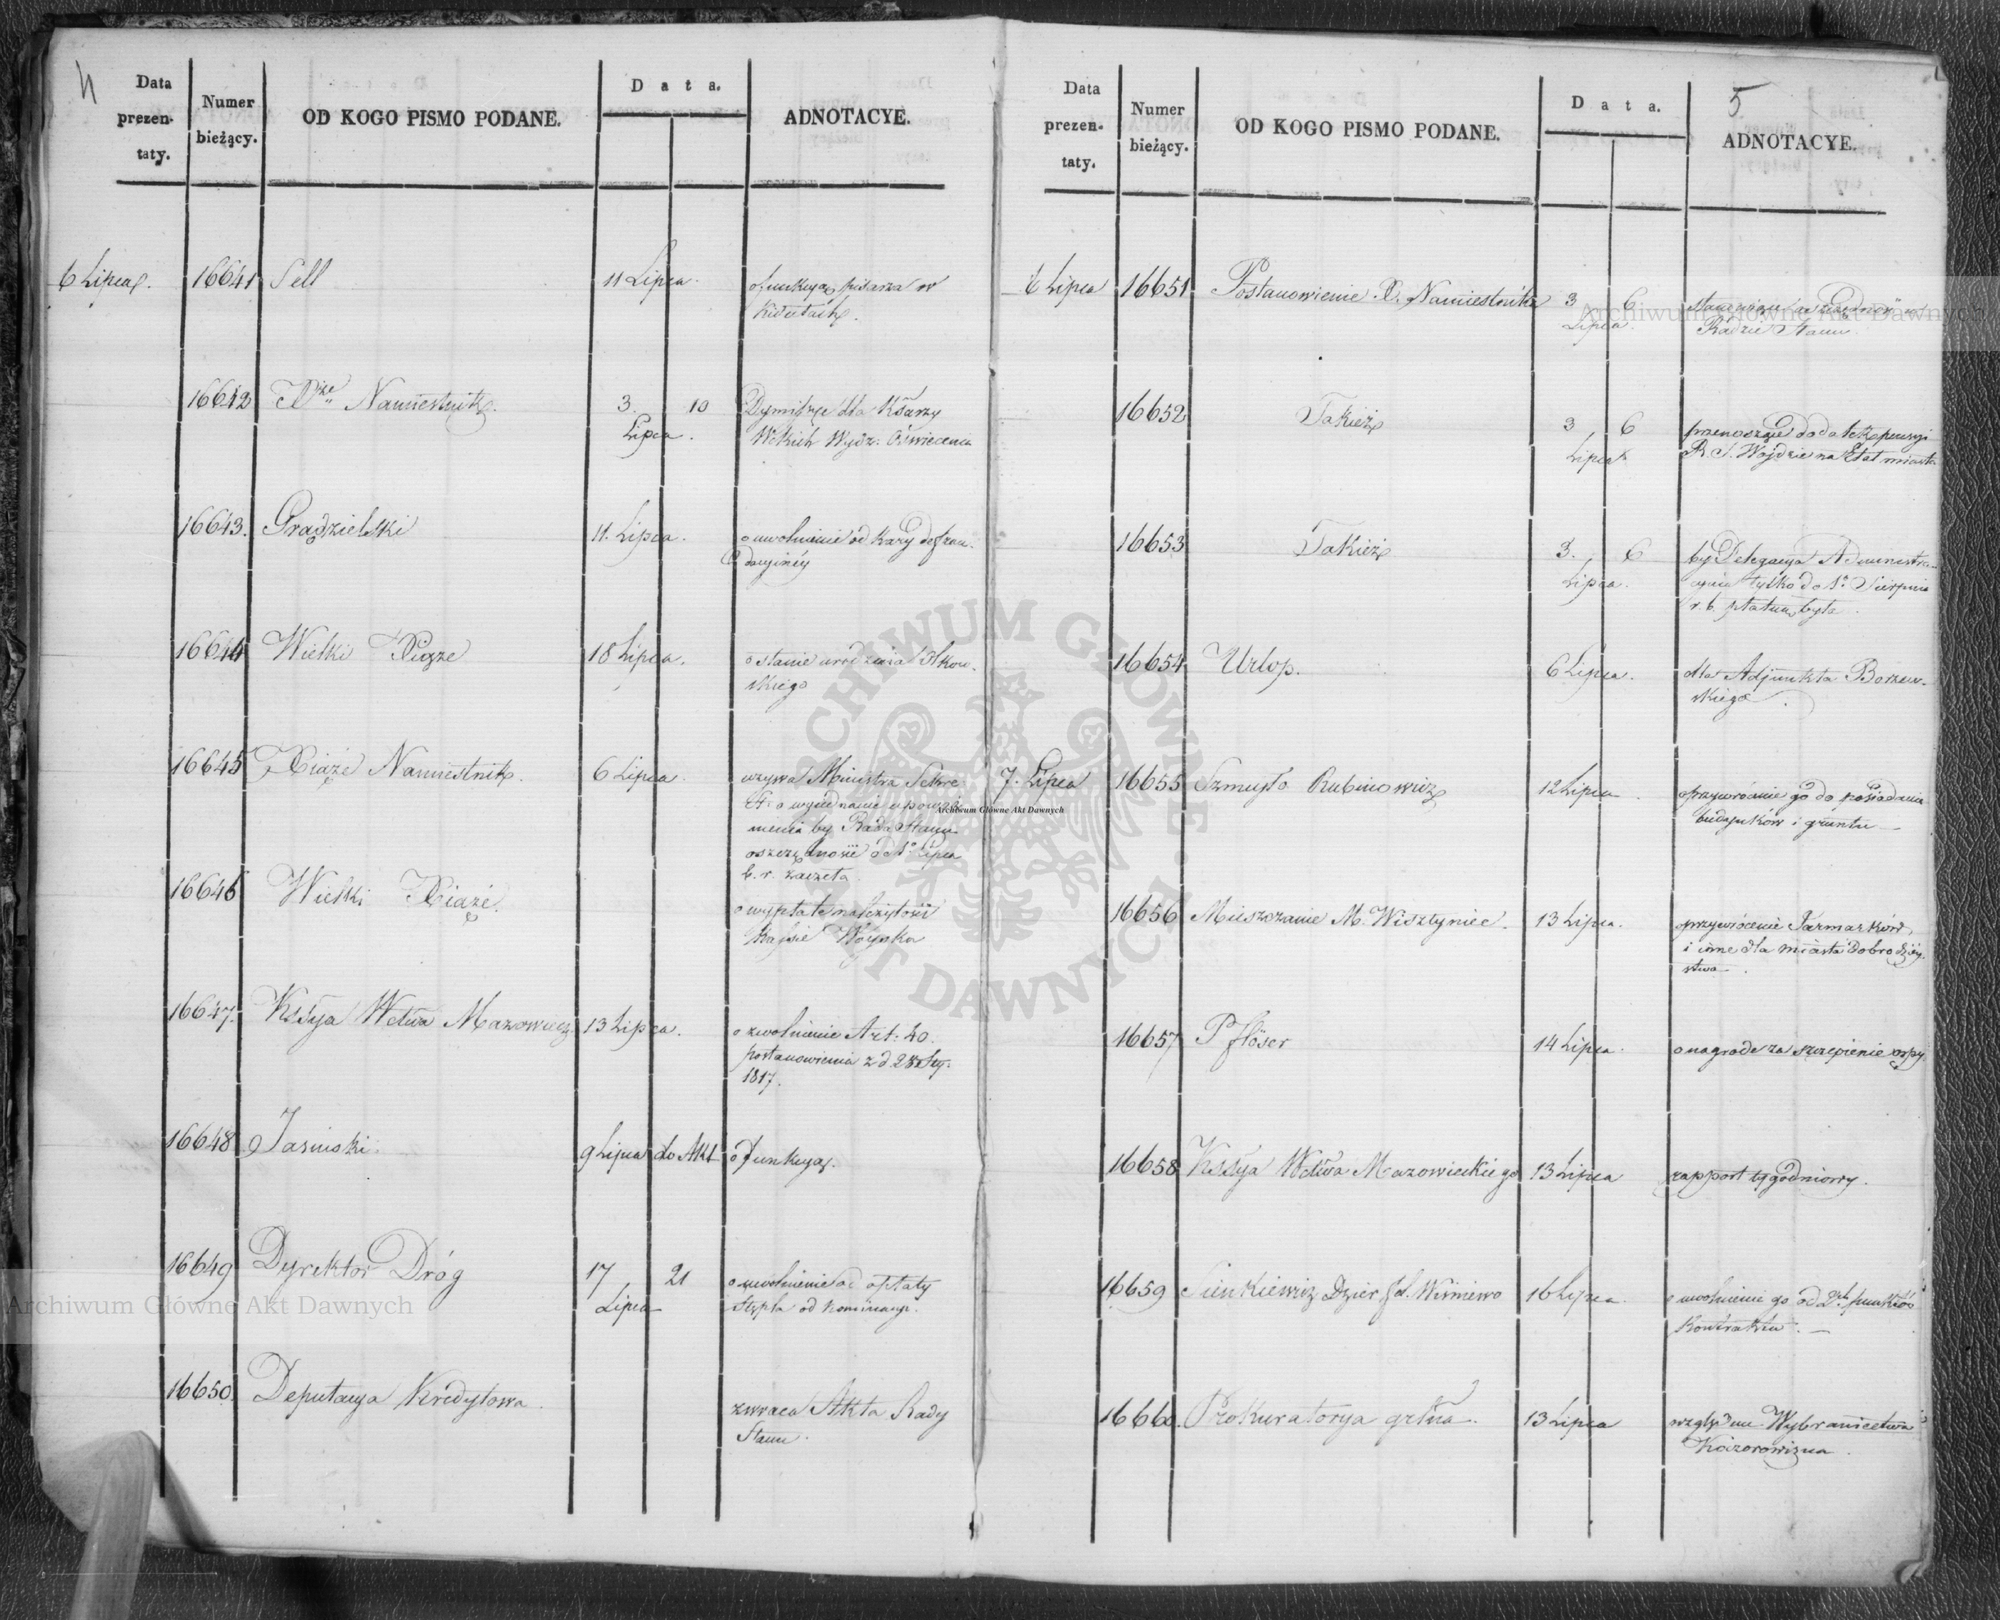 4
Data prezen- taty.
Numer bieżący.
OD KOGO PISMO PODANE.
Data.
ADNOTACYE.
6 Lipca. 16641 Sell 11 Lipca. o funkcyą pisarza w
16642 Xże Namiestnik. 3. Lipca. 10 Dymissye dla
Wydz: Oświecenia
16643. Gradzielski 11. Lipca. o uwolnienie od kary defrau-
dacyinéy
16644 Wielki Xiąże 18 Lipca. o stanie
skiego
16645 Xiąże Namiestnik. 6 Lipca. wzywa Ministra Sekre
by Rada Stanu
oszczędności od 1o Lipca
b. r. zaczęła
16646 Wielki Xiąże. o wypłatę należytości
Woyska
16647. Kssya Wctwa Mazowiec 13 Lipca. o zwolnienie Art: 40.
postanowienia z d
1817.
16648 Jasinski. 9 Lipca do Akt o funkcyą.
16649 Dyrektor Dróg 17 Lipca 21 o uwolnienie od opłaty
stępla od nominacyi.
16650. Deputacya Kredytowa. zwraca Akta Rady
Stanu.
5
Data prezen- taty.
Numer bieżący.
OD KOGO PISMO PODANE.
Data.
ADNOTACYE.
6 Lipca 16651 Postanowienie X. Namiestnika 3 Lipca. 6
Radzie Stanu.
16652 Takież 3 Lipca 6 przenoszące dodatek pensyi
na Etat miast
16653 Takież 3. Lipca. 6 by Delegacya Administra-
cyina tylko do 1o Sierpnia
r. b. płatną była.
16654 Urlop. 6 Lipca. dla Adjunkta Borzew-
skiego
7. Lipca 16655 Szmuyło Rubinowicz 12 Lipca o przywrócenie go do posiadania
budynków i gruntu —
16656 Mieszczanie M. Wisztyniec. 13 Lipca. o przywrócenie Jarmarków,
i inne dla miasta dobrodziey-
stwa.
16657 Pflöser 14 Lipca. o nagrodę za szczepienie ospy.
16658 Kssya Wctwa Mazowieckiego 13 Lipca rapport tygodniowy.
16659 Sienkiewicz Dzier: Wiśniewo 16 Lipca. o uwolnienie go od 2ch punktów
Kontraktu. —
16660. Prokuratorya grlna. 13 Lipca względem Wybraniectwa
Kaczorowizna.
Archiwum Główne Akt Dawnych
Archiwum Główne Akt Dawnych
Archiwum Główne Akt Dawnych
ARCHIWUM GŁÓWNE AKT DAWNYCH